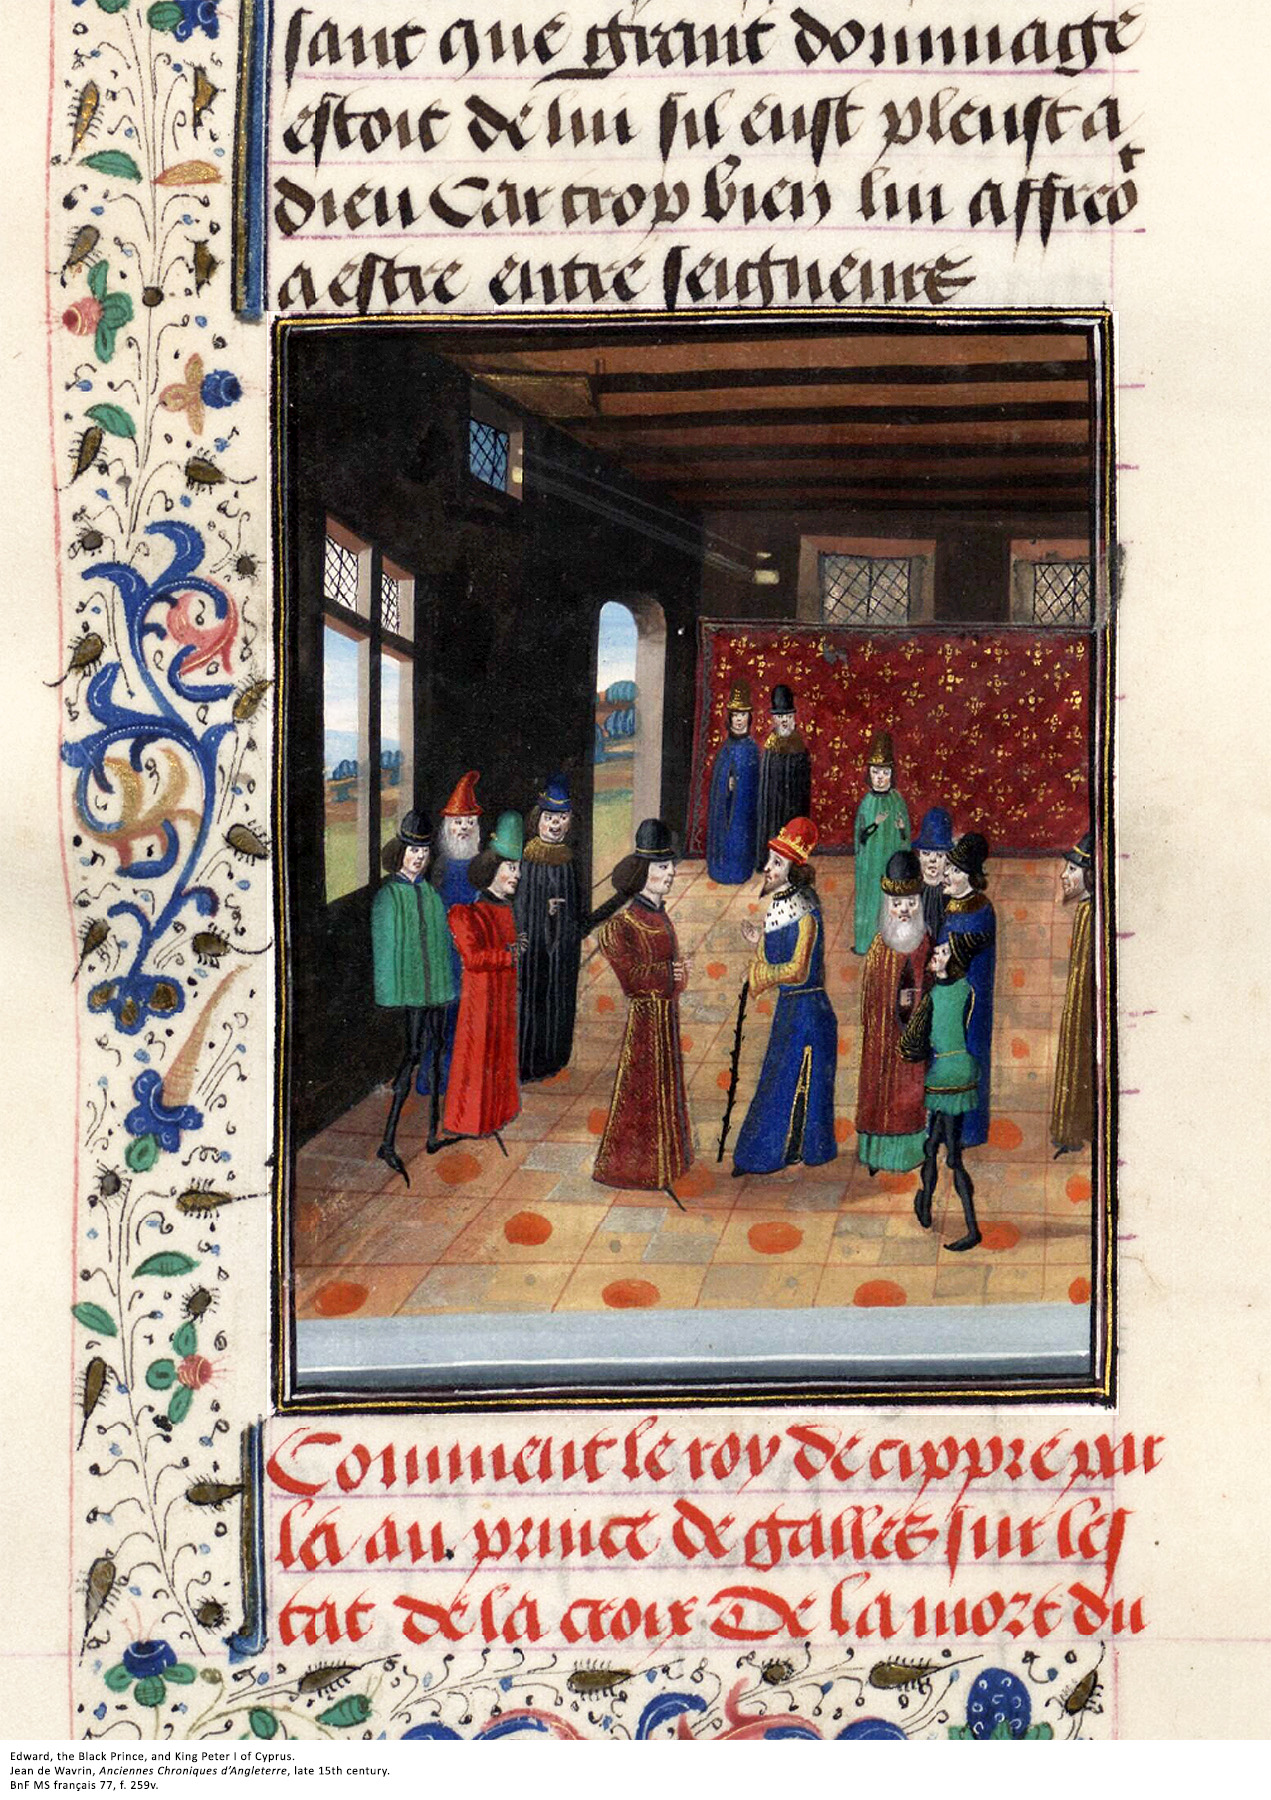 sant que grant dommage
estoit de lui sil eust pleust a
dieu Car trop bien lui affreoit
a estre entre seigneurs
Comment le roy de cippre par
la au prince de galles sur les
tat de la croix De la mort du
Edward, the Black Prince, and King Peter I of Cyprus.
Jean de Wavrin, Anciennes Chroniques d'Angleterre, late 15th century.
BnF MS français 77, f. 259v.